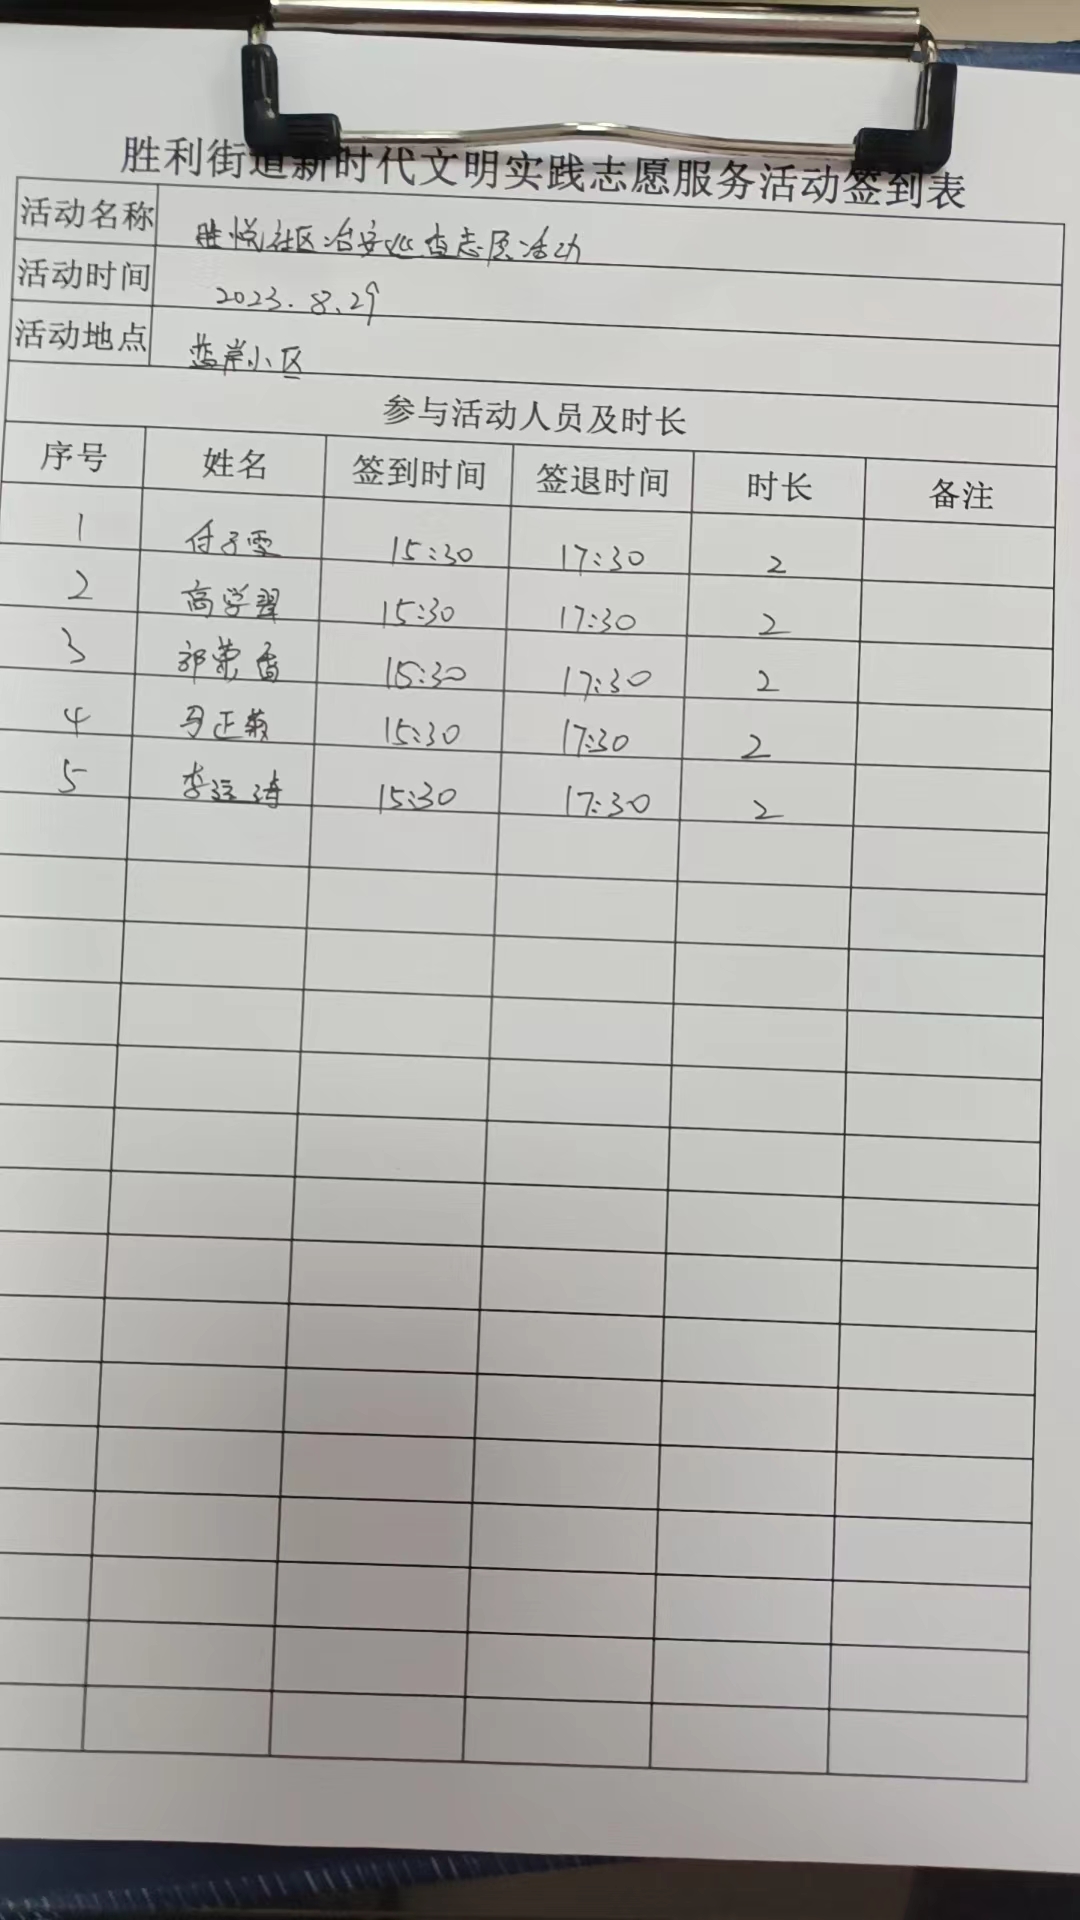 胜利街道新时代文明实践志愿服务活动签到表
活动名称 胜悦社区治安巡查志愿活动
活动时间 2023.8.29
活动地点 蓝岸小区
参与活动人员及时长
序号 姓名 签到时间 签退时间 时长 备注
1 付子雯 15:30 17:30 2
2 高学翠 15:30 17:30 2
3 郭荣香 15:30 17:30 2
4 马正菊 15:30 17:30 2
5 李 涛 15:30 17:30 2